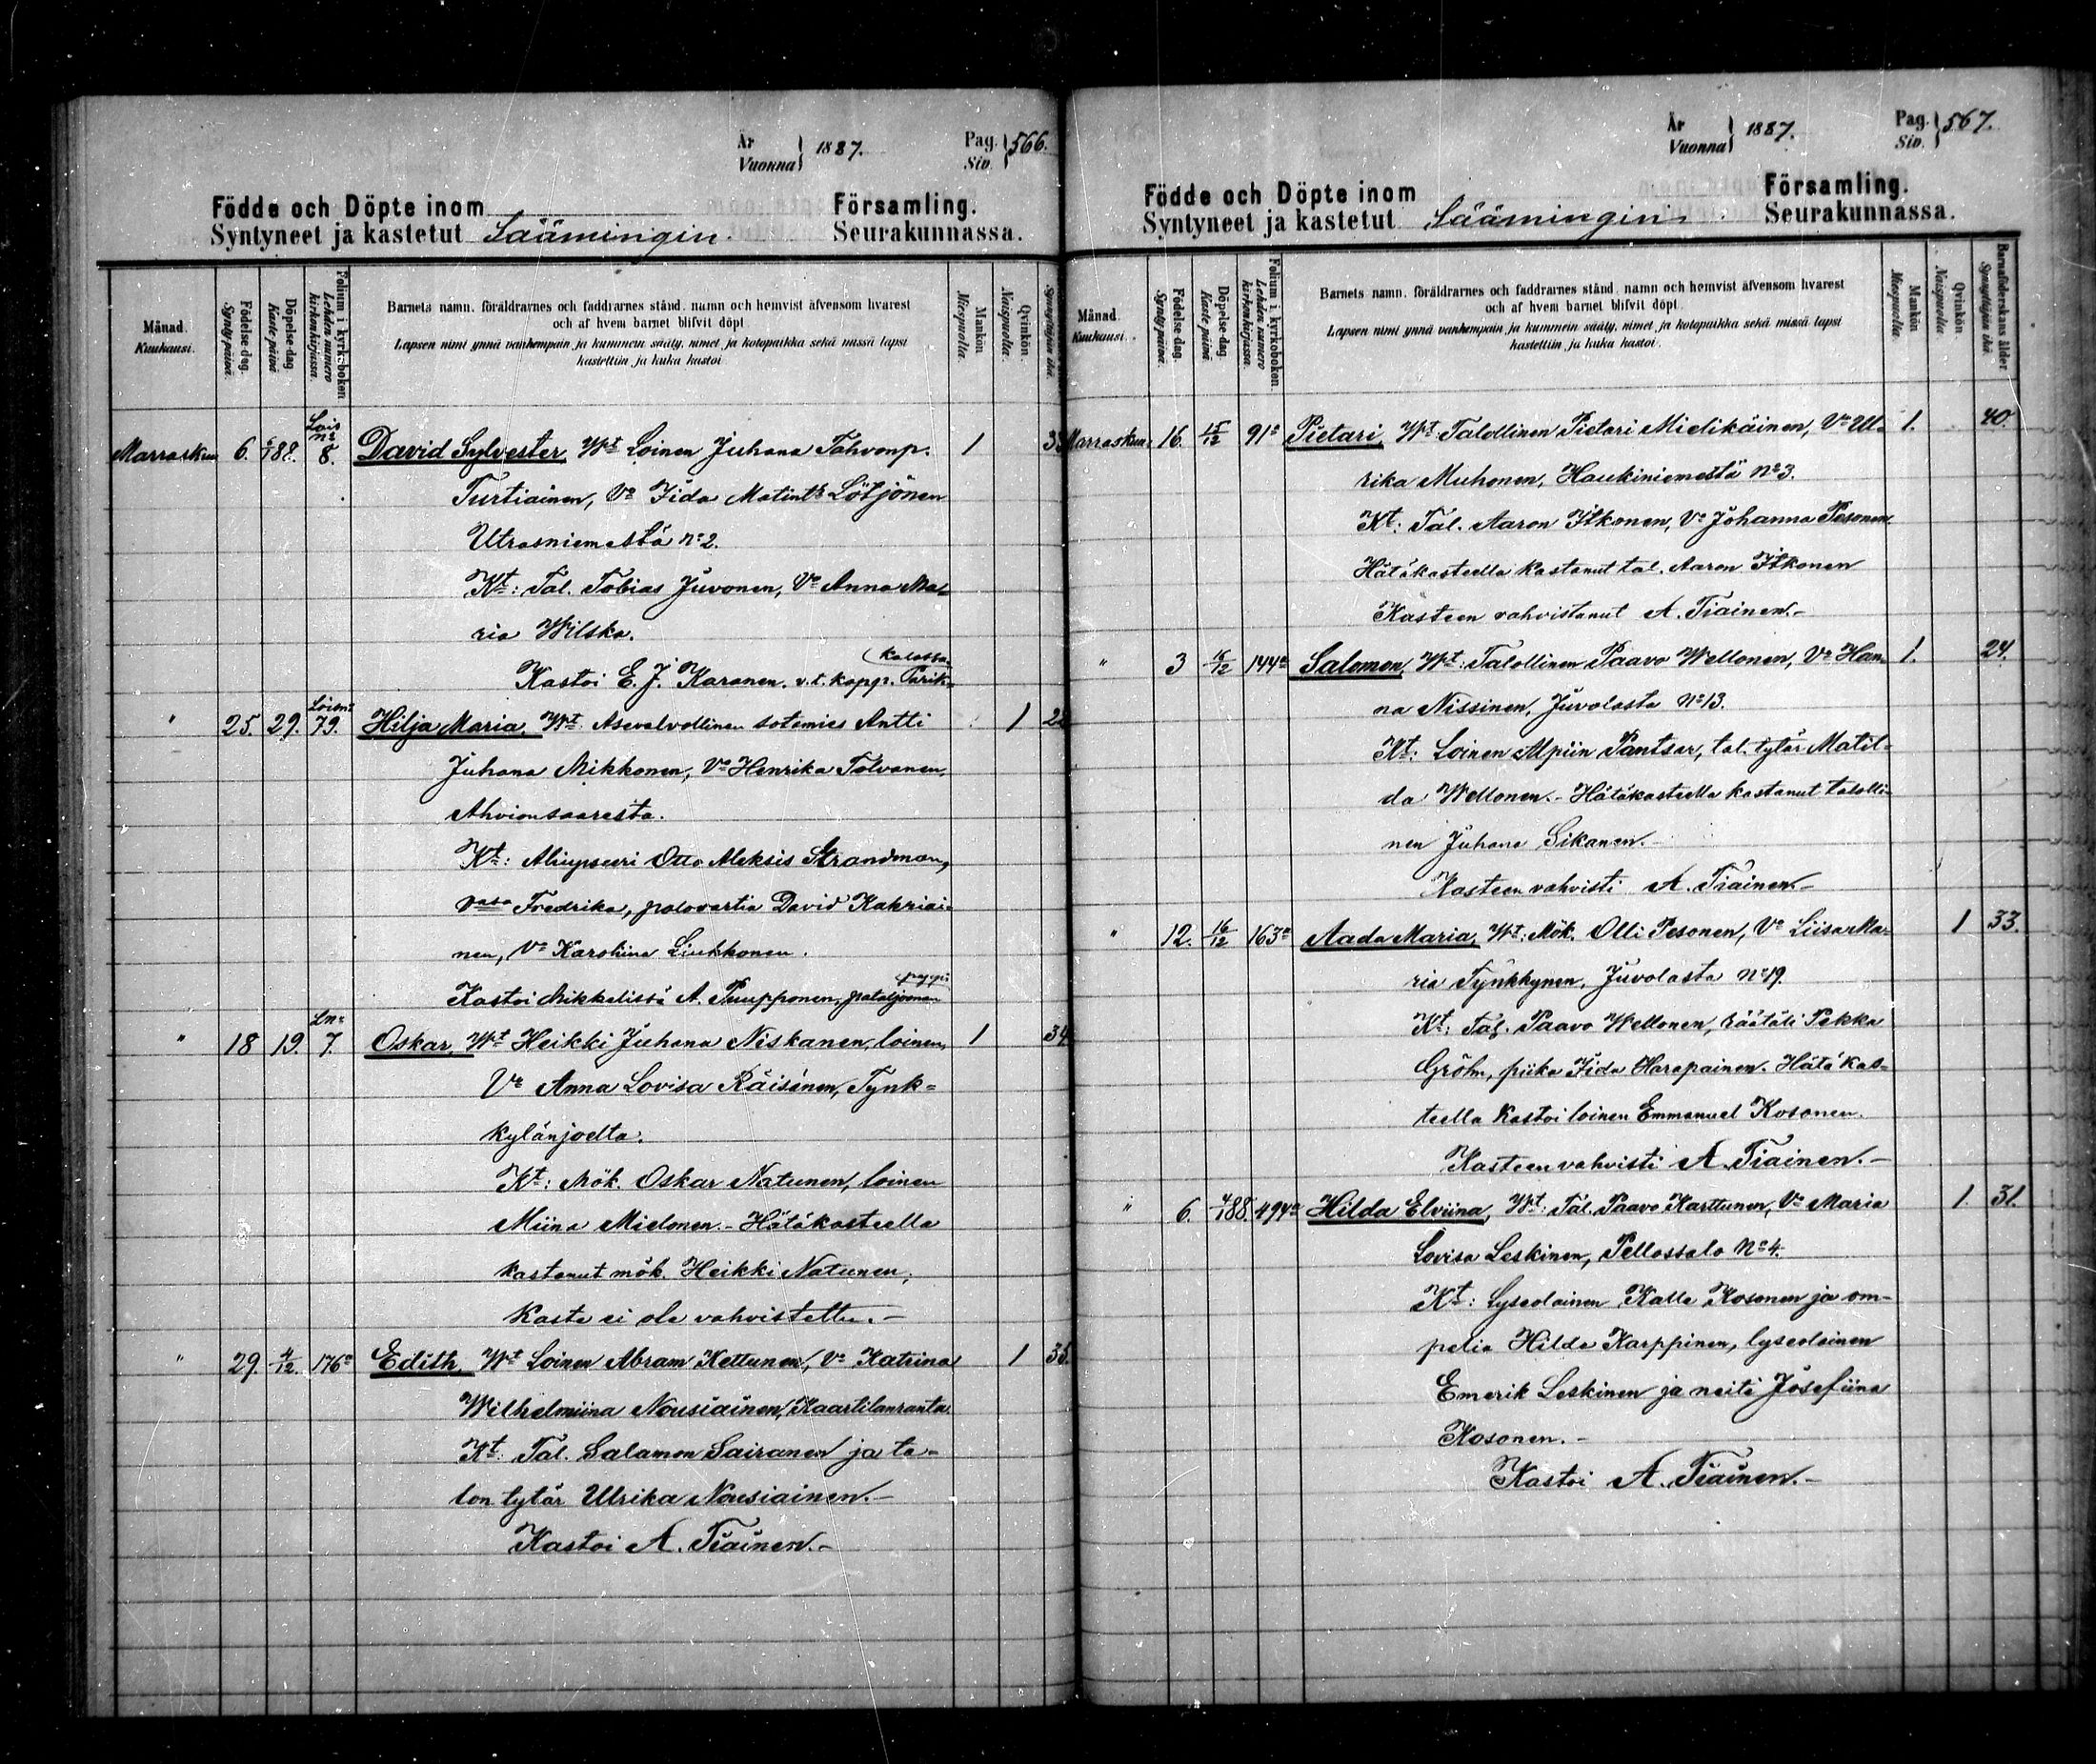 År
Vuonna } 1887.
Pag.
Siv. } 566.
Födde och Döpte inom Församling.
Syntyneet ja kastetut Säämingin Seurakunnassa.
Månad.
Kuukausi.
Födelse dag.
Synty päivä.
Döpelse dag
Kaste päivä
Folium i kyrkoboken
Lehden numero
kirkon kirjassa.
Barnets namn, föräldrarnes och faddrarnes stånd, namn och hemvist äfvensom hvarest
och af hvem barnet blifvit döpt
Lapsen nimi ynnä vanhempain ja kummein sääty, nimet ja kotopaikka sekä missä lapsi
kastettiin ja kuka kastoi
Mankön
Miespuolia.
Qvinkön.
Naispuolia.
Synnyttäjän ikä.
Marraskuu 6. 6/188. Lois n:o 8. David Sylvester, Wt Loinen Juhana Tahvonp. 1
Turtiainen, Vo Iida Matintr Lötjönen
Utrasniemestä No 2.
Kt: Tal. Tobias Juvonen, Vo Anna Ma-
ria Wilska.
Kastoi E. J. Karanen. v.t. kapp. Parik-
kalassa
" 25. 29. Lois n:o 79. Hilja Maria, Wt Asevelvollinen sotamies Antti 1
Juhana Mikkonen, Vo Henrika Tolvanen,
Ahvionsaaresta.
Kt: Aliupseeri Otto Aleksis Strandman,
vaso Fredrika, palovartia David Kakriai-
nen, Vo Karoliina Liukkonen.
Kastoi Mikkelissä A. Puupponen, pataljoonan
pappi
" 18 19. Ln:o 7. Oskar, Wt Heikki Juhana Niskanen, loinen, 1 34.
Vo Anna Lovisa Räisänen, Tynk-
kylänjoelta.
Kt: Mök. Oskar Natunen, loinen
Miina Mielonen. - Hätäkasteella
kastanut mök. Heikki Natunen;
Kaste ei ole vahvistettu. -
" 29. 4/12. 176a Edith, Wt Loinen Abram Kettunen, Vo Katrina 1 35.
Wilhelmiina Nousiainen, Kaartilanranta.
Kt: Tal. Salamon Sairanen ja ta-
lon tytär Ulrika Nousiainen. -
Kastoi A. Tiainen. -
År
Vuonna } 1887.
Pag.
Siv. } 567.
Födde och Döpte inom Församling.
Syntyneet ja kastetut Säämingin Seurakunnassa.
Månad.
Kuukausi.
Födelse dag.
Synty päivä.
Döpelse dag
Kaste päivä
Folium i kyrkoboken
Lehden numero
kirkon kirjassa.
Barnets namn, föräldrarnes och faddrarnes stånd, namn och hemvist äfvensom hvarest
och af hvem barnet blifvit döpt.
Lapsen nimi ynnä vanhempain ja kummein sääty, nimet ja kotopaikka sekä missä lapsi
kastettiin ja kuka kastoi.
Mankön
Miespuolia.
Qvinkön
Naispuolia.
Barnaföderskans ålder
Synnyttäjän ikä.
Marraskuu 16. 15/12 91a Pietari, Wt Talollinen Pietari Mielikäinen, Vo Ul- 1. 40.
rika Muhonen, Haukiniemestä No 3.
Kt: Tal. Aaron Itkonen, Vo Johanna Pesonen.
Hätäkasteella kastanut tal. Aaron Itkonen
Kasteen vahvistanut A. Tiainen. -
" 3 16/12 144a Salomon, Wt: Talollinen Paavo Wellonen, Vo Han- 1. 24.
na Nissinen, Juvolasta No 13.
Kt: Loinen Alpiin Pantsar, tal. tytär Matil-
da Wellonen. - Hätäkasteella kastanut talolli-
nen Juhana Sikanen. -
Kasteen vahvisti A. Tiainen. -
" 12. 16/12 163a Aada Maria, Wt: Mök. Olli Pesonen, Vo Liisa Ma- 1 33.
ria Tynkkynen, Juvolasta No 19.
Kt: Tal. Paavo Wellonen, räätäli Pekka
Gröhn, piika Iida Harapainen. Hätä kas-
teella kastoi loinen Emmanuel Kosonen.
Kasteen vahvisti A. Tiainen. -
" 6. 4/188. 494a Hilda Elviina, Wt: Tal. Paavo Karttunen, Vo Maria 1. 31.
Lovisa Leskinen, Pellossalo No 4.
Kt: Lyseolainen Kalle Kosonen ja om-
pelia Hilda Karppinen, lyseolainen
Emerik Leskinen ja neiti Josefiina
Kosonen. -
Kastoi A. Tiainen. -